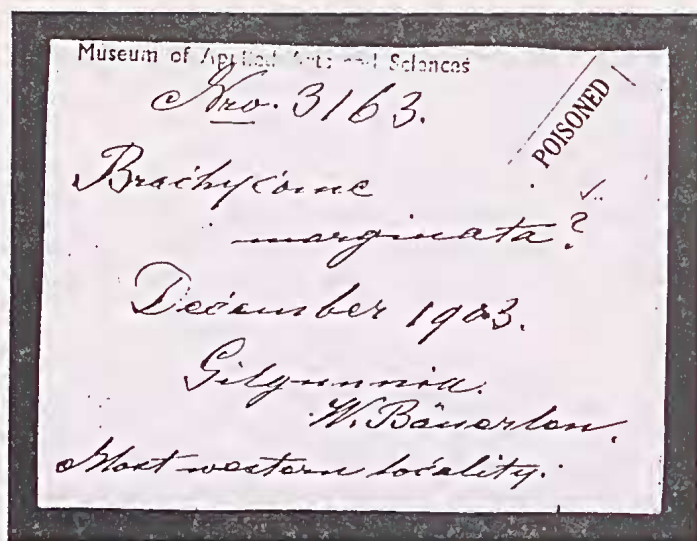 Museum of Applied Arts and Sciences
POISONED
Nro. 3163.
Brachycome
marginata?
December 1903.
Gilgunnia.
W. Bäuerlen.
Most western locality.